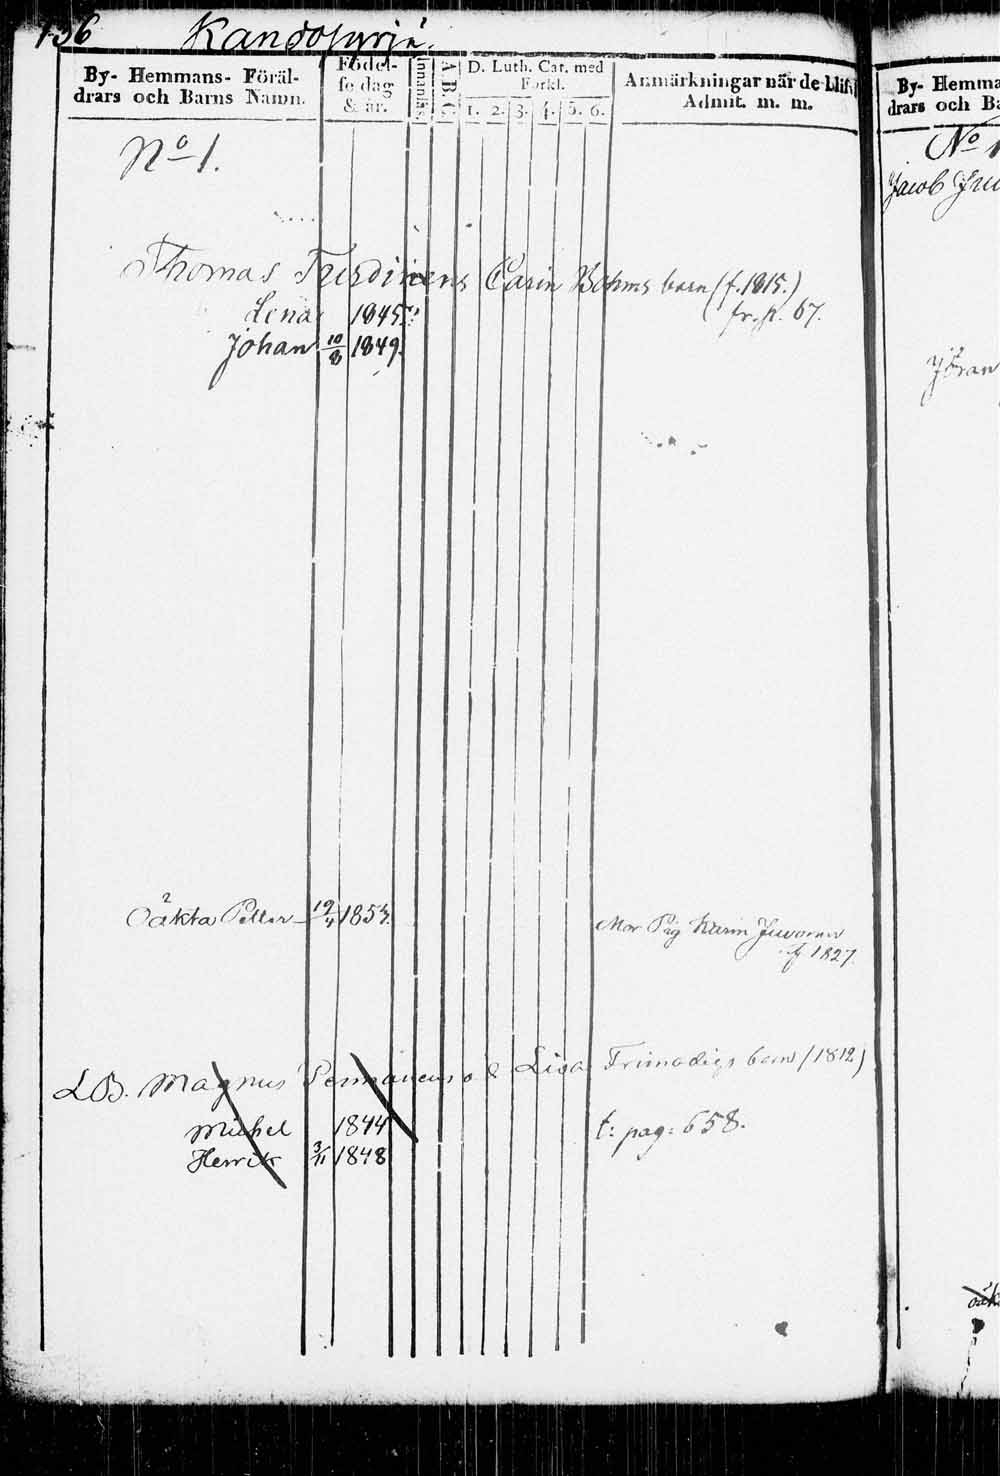 136 Kandosyrjä.
By- Hemmans- Föräldrars och Barns Namn.
Födelsedag & år.
Innanläs.
A.B.C.
D. Luth. Cat. med Förkl.
1. 2. 3. 4. 5. 6.
Anmärkningar när de blifv. Admit. m. m.
No 1.
Thomas Carin Böhms barn (f. 1815.)
fr. p. 67.
Lena 1845.
Johan 10/8 1849.
Oäkta Petter 19/4 1853.
Mor Pig Karin Juvonen
f 1827.
LB. Magnus Pennanens o Lisa barn (1812)
Michel 1844
t: pag: 658.
Henrik 3/11 1848
By- Hemma
drars och Ba
No 1
Jacob Juv
Jöran
oäk